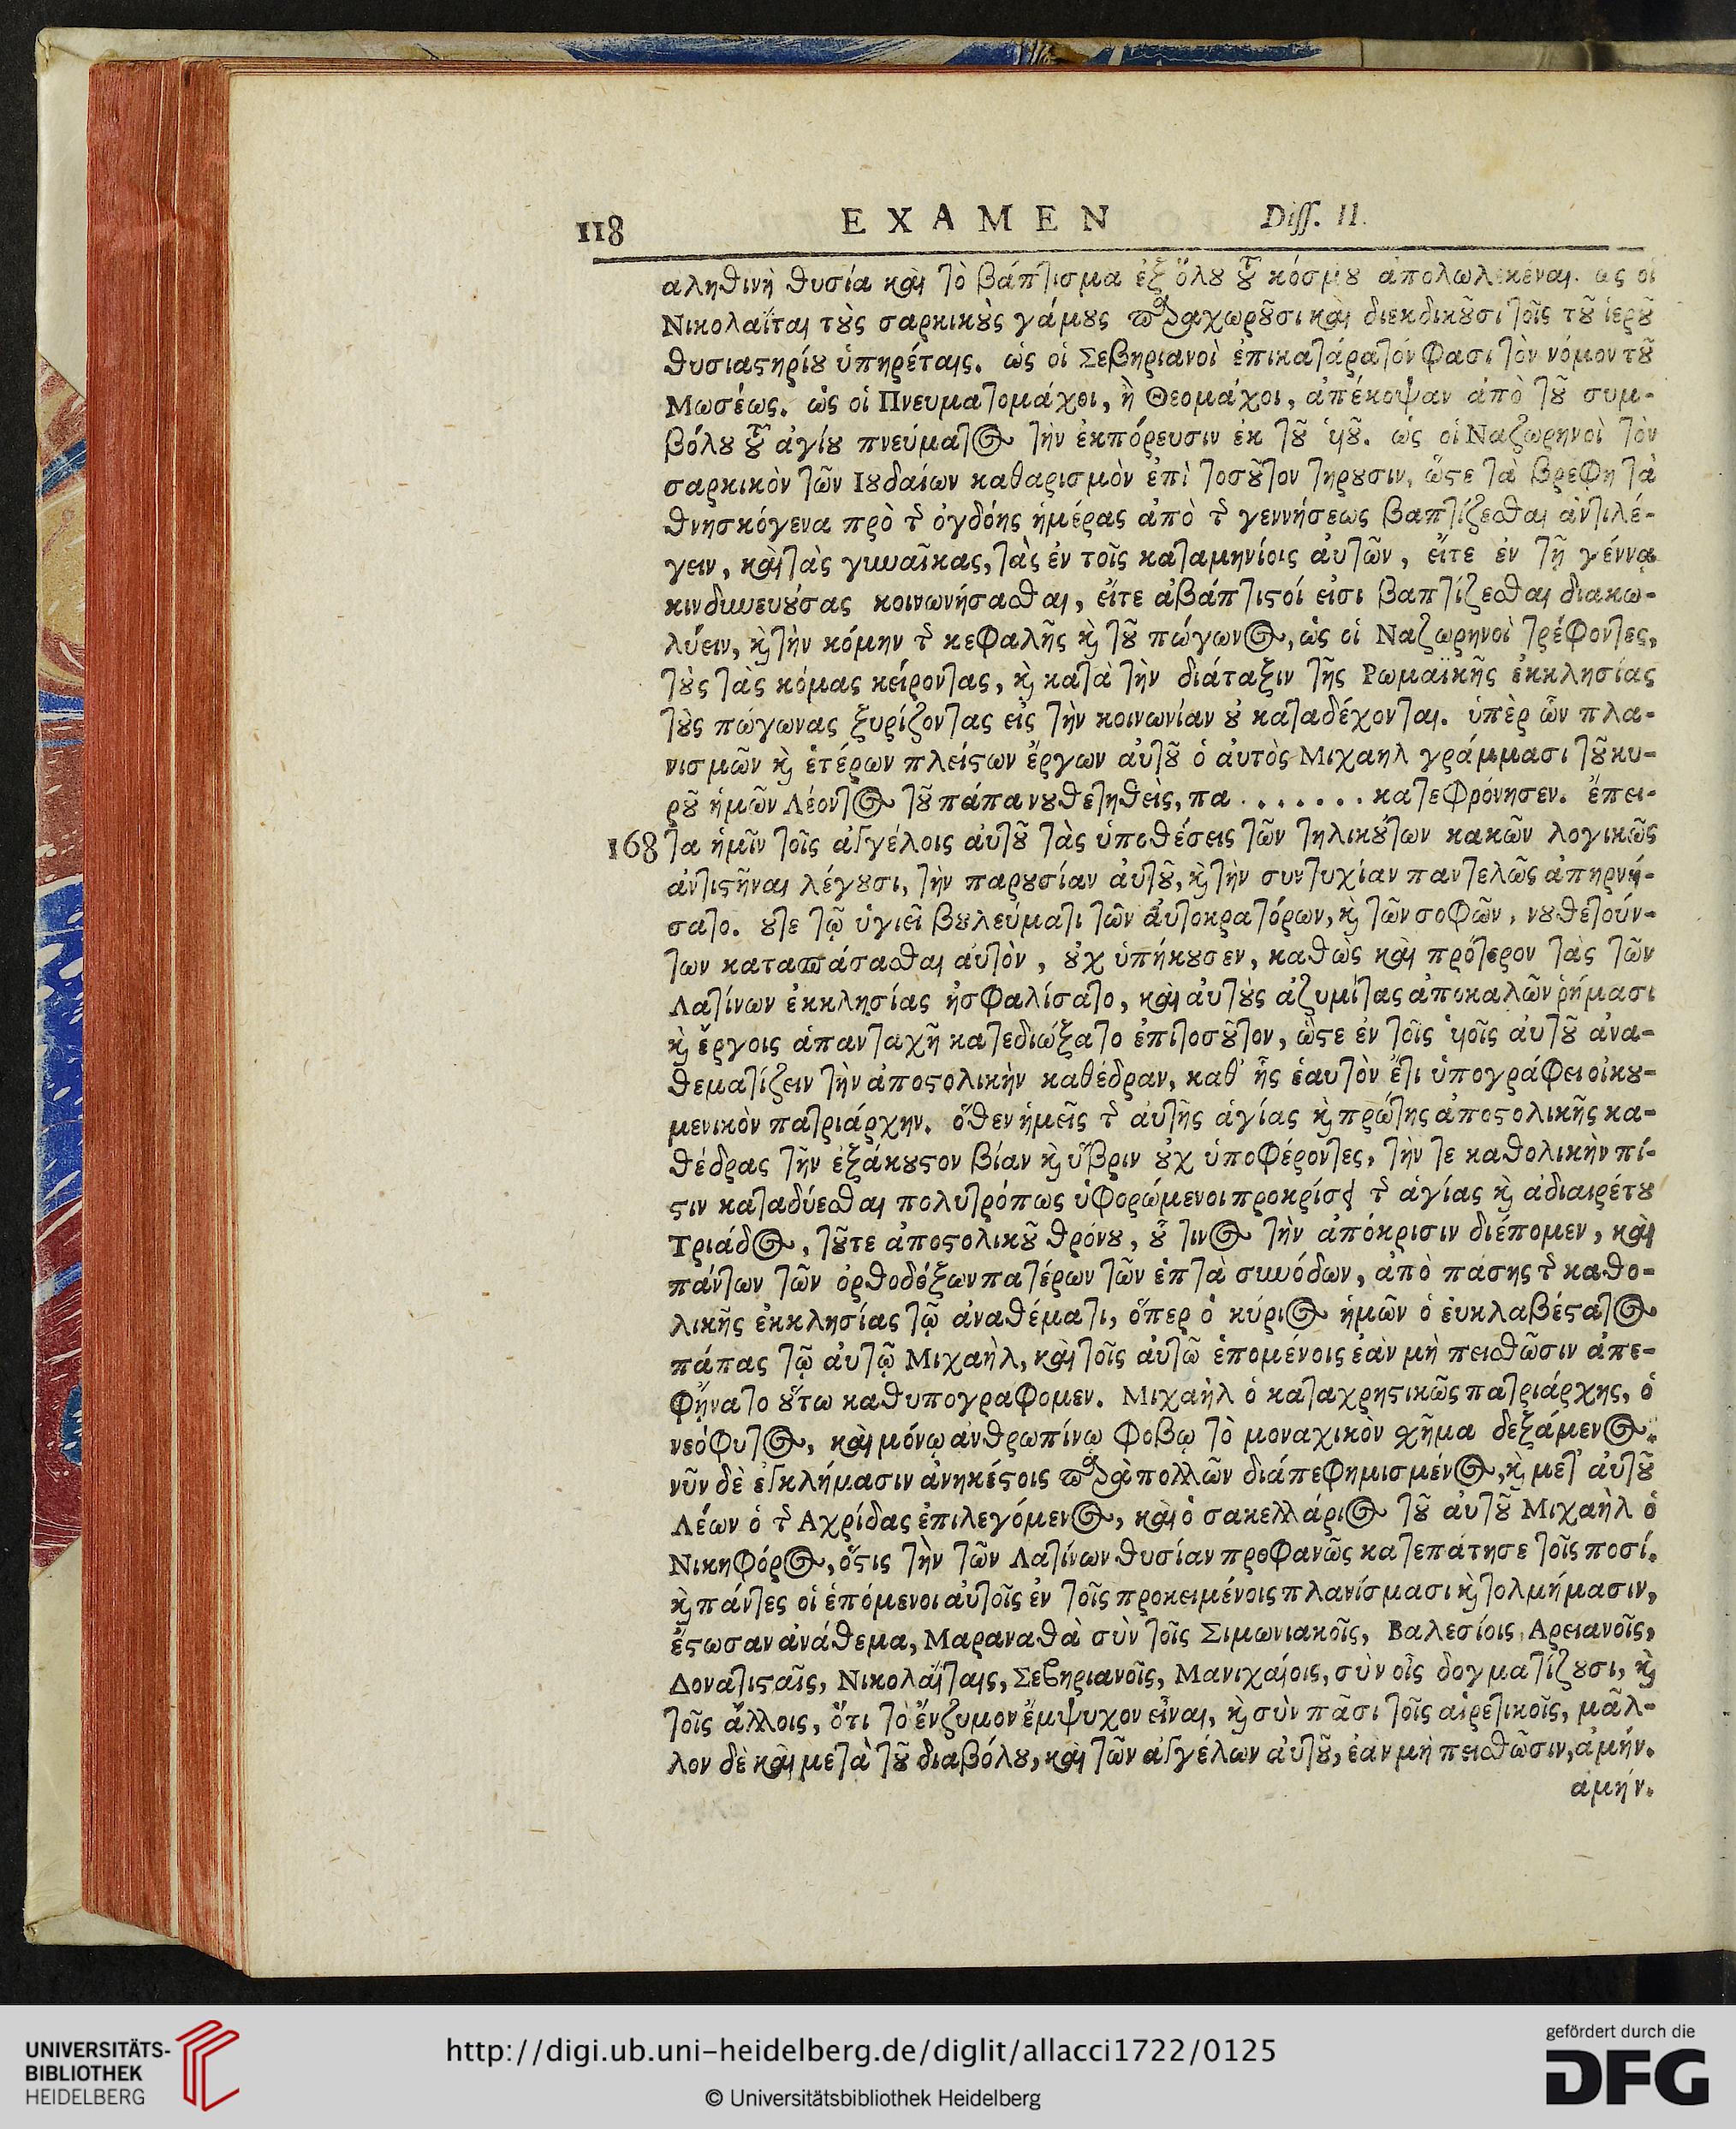 118 EXAMEN Diss. II.
αληθινὴ θυσία καὶ τὸ βάπτισμα ἐξ ὅλου τοῦ κόσμου ἀπολωλεκέναι. ὡς οἱ
Νικολαΐται τοὺς σαρκικοὺς γάμους παραχωροῦσι καὶ διεκδικοῦσι τοῖς τοῦ ἱεροῦ
θυσιαστηρίου ὑπηρέταις. ὡς οἱ Σεβηριανοὶ ἐπικατάρατόν φασι τὸν νόμον τοῦ
Μωσέως. ὡς οἱ Πνευματομάχοι, ἢ Θεομάχοι, ἀπέκοψαν ἀπὸ τοῦ συμ-
βόλου τοῦ ἁγίου πνεύματος τὴν ἐκπόρευσιν ἐκ τοῦ ὑιοῦ. ὡς οἱ Ναζωρηνοὶ τὸν
σαρκικὸν τῶν Ιουδαίων καθαρισμὸν ἐπὶ τοσοῦτον τηρουσιν, ὥστε τὰ βρεφη τὰ
θνησκόγενα πρὸ τῆς ὀγδόης ἡμέρας ἀπὸ τῆς γεννήσεως βαπτίζεσθαι ἀντιλέ-
γειν, καὶ τὰς γυναῖκας, τὰς ἐν τοῖς καταμηνίοις ἀυτῶν, εἴτε ἐν τῇ γέννᾳ
κινδυνευούσας κοινωνήσασθαι, εἴτε ἀβάπτιστοί εἰσι βαπτίζεσθαι διακω-
λύειν, καὶ τὴν κόμην τῆς κεφαλῆς καὶ τοῦ πώγωνος, ὡς οἱ Ναζωρηνοὶ τρέφοντες,
τοὺς τὰς κόμας κείροντας, καὶ κατὰ τὴν διάταξιν τῆς Ρωμαϊκῆς ἐκκλησίας
τοὺς πώγωνας ξυρίζοντας εἰς τὴν κοινωνίαν οὐ καταδέχονται. ὑπὲρ ὧν πλα-
νισμῶν καὶ ἑτέρων πλείστων ἔργων ἀυτοῦ ὁ ἀυτὸς Μιχαηλ γράμμασι τοῦ κυ-
ροῦ ἡμῶν Λέοντος τοῦ πάπα νουθετηθεὶς, πα . . . . . . . κατεφρόνησεν. ἔπει-
168 τα ἡμῖν τοῖς ἀγγέλοις ἀυτοῦ τὰς ὑποθέσεις τῶν τηλικούτων κακῶν λογικῶς
ἀντιστῆναι λέγουσι, τὴν παρουσίαν ἀυτοῦ, καὶ τὴν συντυχίαν παντελῶς ἀπηρνή-
σατο. ουτε τῷ ὑγιεῖ βουλεύματι τῶν ἀυτοκρατόρων, καὶ τῶν σοφῶν, νουθετούν-
των κατασπάσασθαι ἀυτὸν, οὐχ ὑπήκουσεν, καθὼς καὶ πρότερον τὰς τῶν
Λατίνων ἐκκλησίας ἠσφαλίσατο, καὶ ἀυτοὺς ἀζυμίτας ἀποκαλῶν ῥήμασι
καὶ ἔργοις ἁπανταχῆ κατεδιώξατο ἐπιτοσοῦτον, ὥστε ἐν τοῖς ὑιοῖς ἀυτοῦ ἀνα-
θεματίζειν τὴν ἀποστολικὴν καθέδραν, καθ᾽ ἧς ἑαυτὸν ἔτι ὑπογράφει οἰκου-
μενικὸν πατριάρχην. ὅθεν ἡμεῖς τῆς ἀυτῆς ἁγίας καὶ πρώτης ἀποστολικῆς κα-
θέδρας τὴν ἐξάκουστον βίαν καὶ ὕβριν οὐχ ὑποφέροντες, τὴν τε καθολικὴν πί-
στιν καταδύεσθαι πολυτρόπως ὑφορώμενοι προκρίσει τῆς ἁγίας καὶ ἀδιαιρέτου
Τριάδος, τοῦτε ἀποστολικοῦ θρόνου, οὗ τινος τὴν ἀπόκρισιν διέπομεν, καὶ
πάντων τῶν ὀρθοδόξων πατέρων τῶν ἑπτὰ συνόδων, ἀπὸ πάσης τῆς καθο-
λικῆς ἐκκλησίας τῷ ἀναθέματι, ὅπερ ὁ κύριος ἡμῶν ὁ ἐυκλαβέστατος
πάπας τῷ ἀυτῷ Μιχαὴλ, καὶ τοῖς ἀυτῶ ἑπομένοις ἐὰν μὴ πεισθῶσιν ἀπε-
φῄνατο οὕτω καθυπογραφομεν. Μιχαὴλ ὁ καταχρηστικῶς πατριάρχης, ὁ
νεόφυτος, καὶ μόνῳ ἀνθρωπίνῳ φοβῳ τὸ μοναχικὸν σχῆμα δεξάμενος.
νῦν δὲ ἐγκλήμασιν ἀνηκέστοις παρὰ πολλῶν διάπεφημισμένος, καὶ μετ᾽ ἀυτοῦ
Λέων ὁ τῆς Αχρίδας ἐπιλεγόμενος, καὶ ὁ σακελλάριος τοῦ ἀυτοῦ Μιχαὴλ ὁ
Νικηφόρος, ὅστις τὴν τῶν Λατίνων θυσίαν προφανῶς κατεπάτησε τοῖς ποσί.
καὶ πάντες οἱ ἑπόμενοι ἀυτοῖς ἐν τοῖς προκειμένοις πλανίσμασι καὶ τολμήμασιν,
ἔστωσαν ἀνάθεμα, Μαραναθὰ σὺν τοῖς Σιμωνιακοῖς, Βαλεσίοις, Αρειανοῖς,
Δονατισταῖς, Νικολαΐταις, Σεβηριανοῖς, Μανιχαίοις, σὺν οἷς δογματίζουσι, καὶ
τοῖς ἄλλοις, ὅτι τὸ ἔνζυμον ἔμψυχον εἶναι, καὶ σὺν πᾶσι τοῖς αἱρετικοῖς, μᾶλ-
λον δὲ καὶ μετὰ τοῦ διαβόλου, καὶ τῶν ἀγγέλων ἀυτοῦ, ἐὰν μὴ πεισθῶσιν, ἀμήν.
αμήν.
UNIVERSITÄTS-
BIBLIOTHEK
HEIDELBERG
http://digi.ub.uni-heidelberg.de/diglit/allacci1722/0125
© Universitätsbibliothek Heidelberg
gefördert durch die
DFG